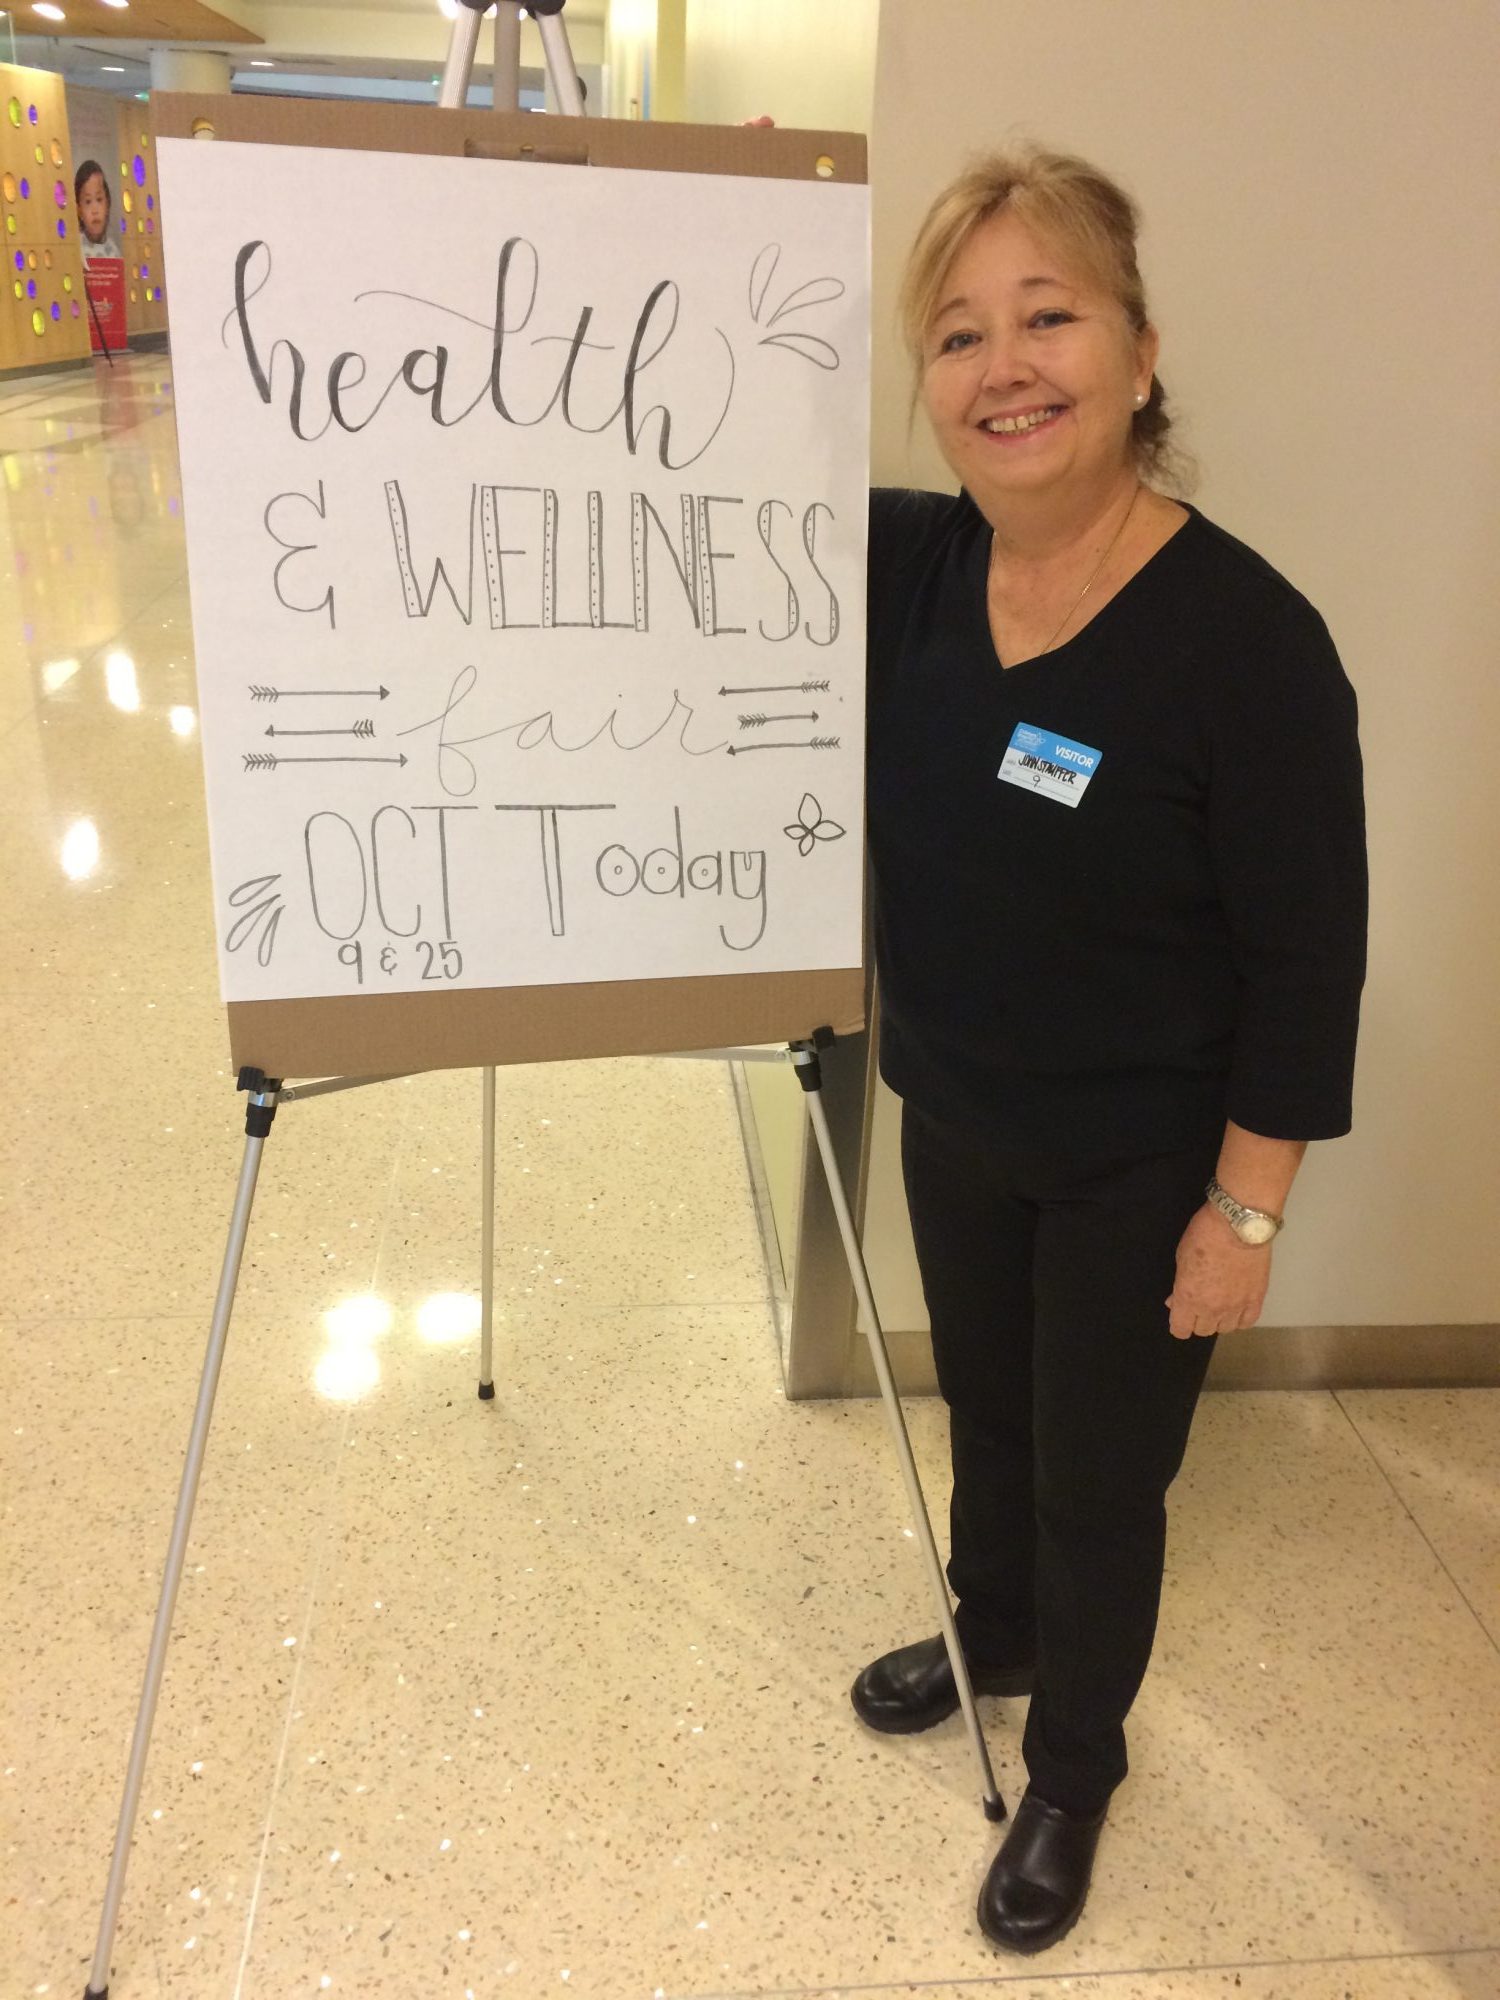 health
& WELLNESS
fair
OCT Today
9 & 25
VISITOR
JOHN STAUFFER
9